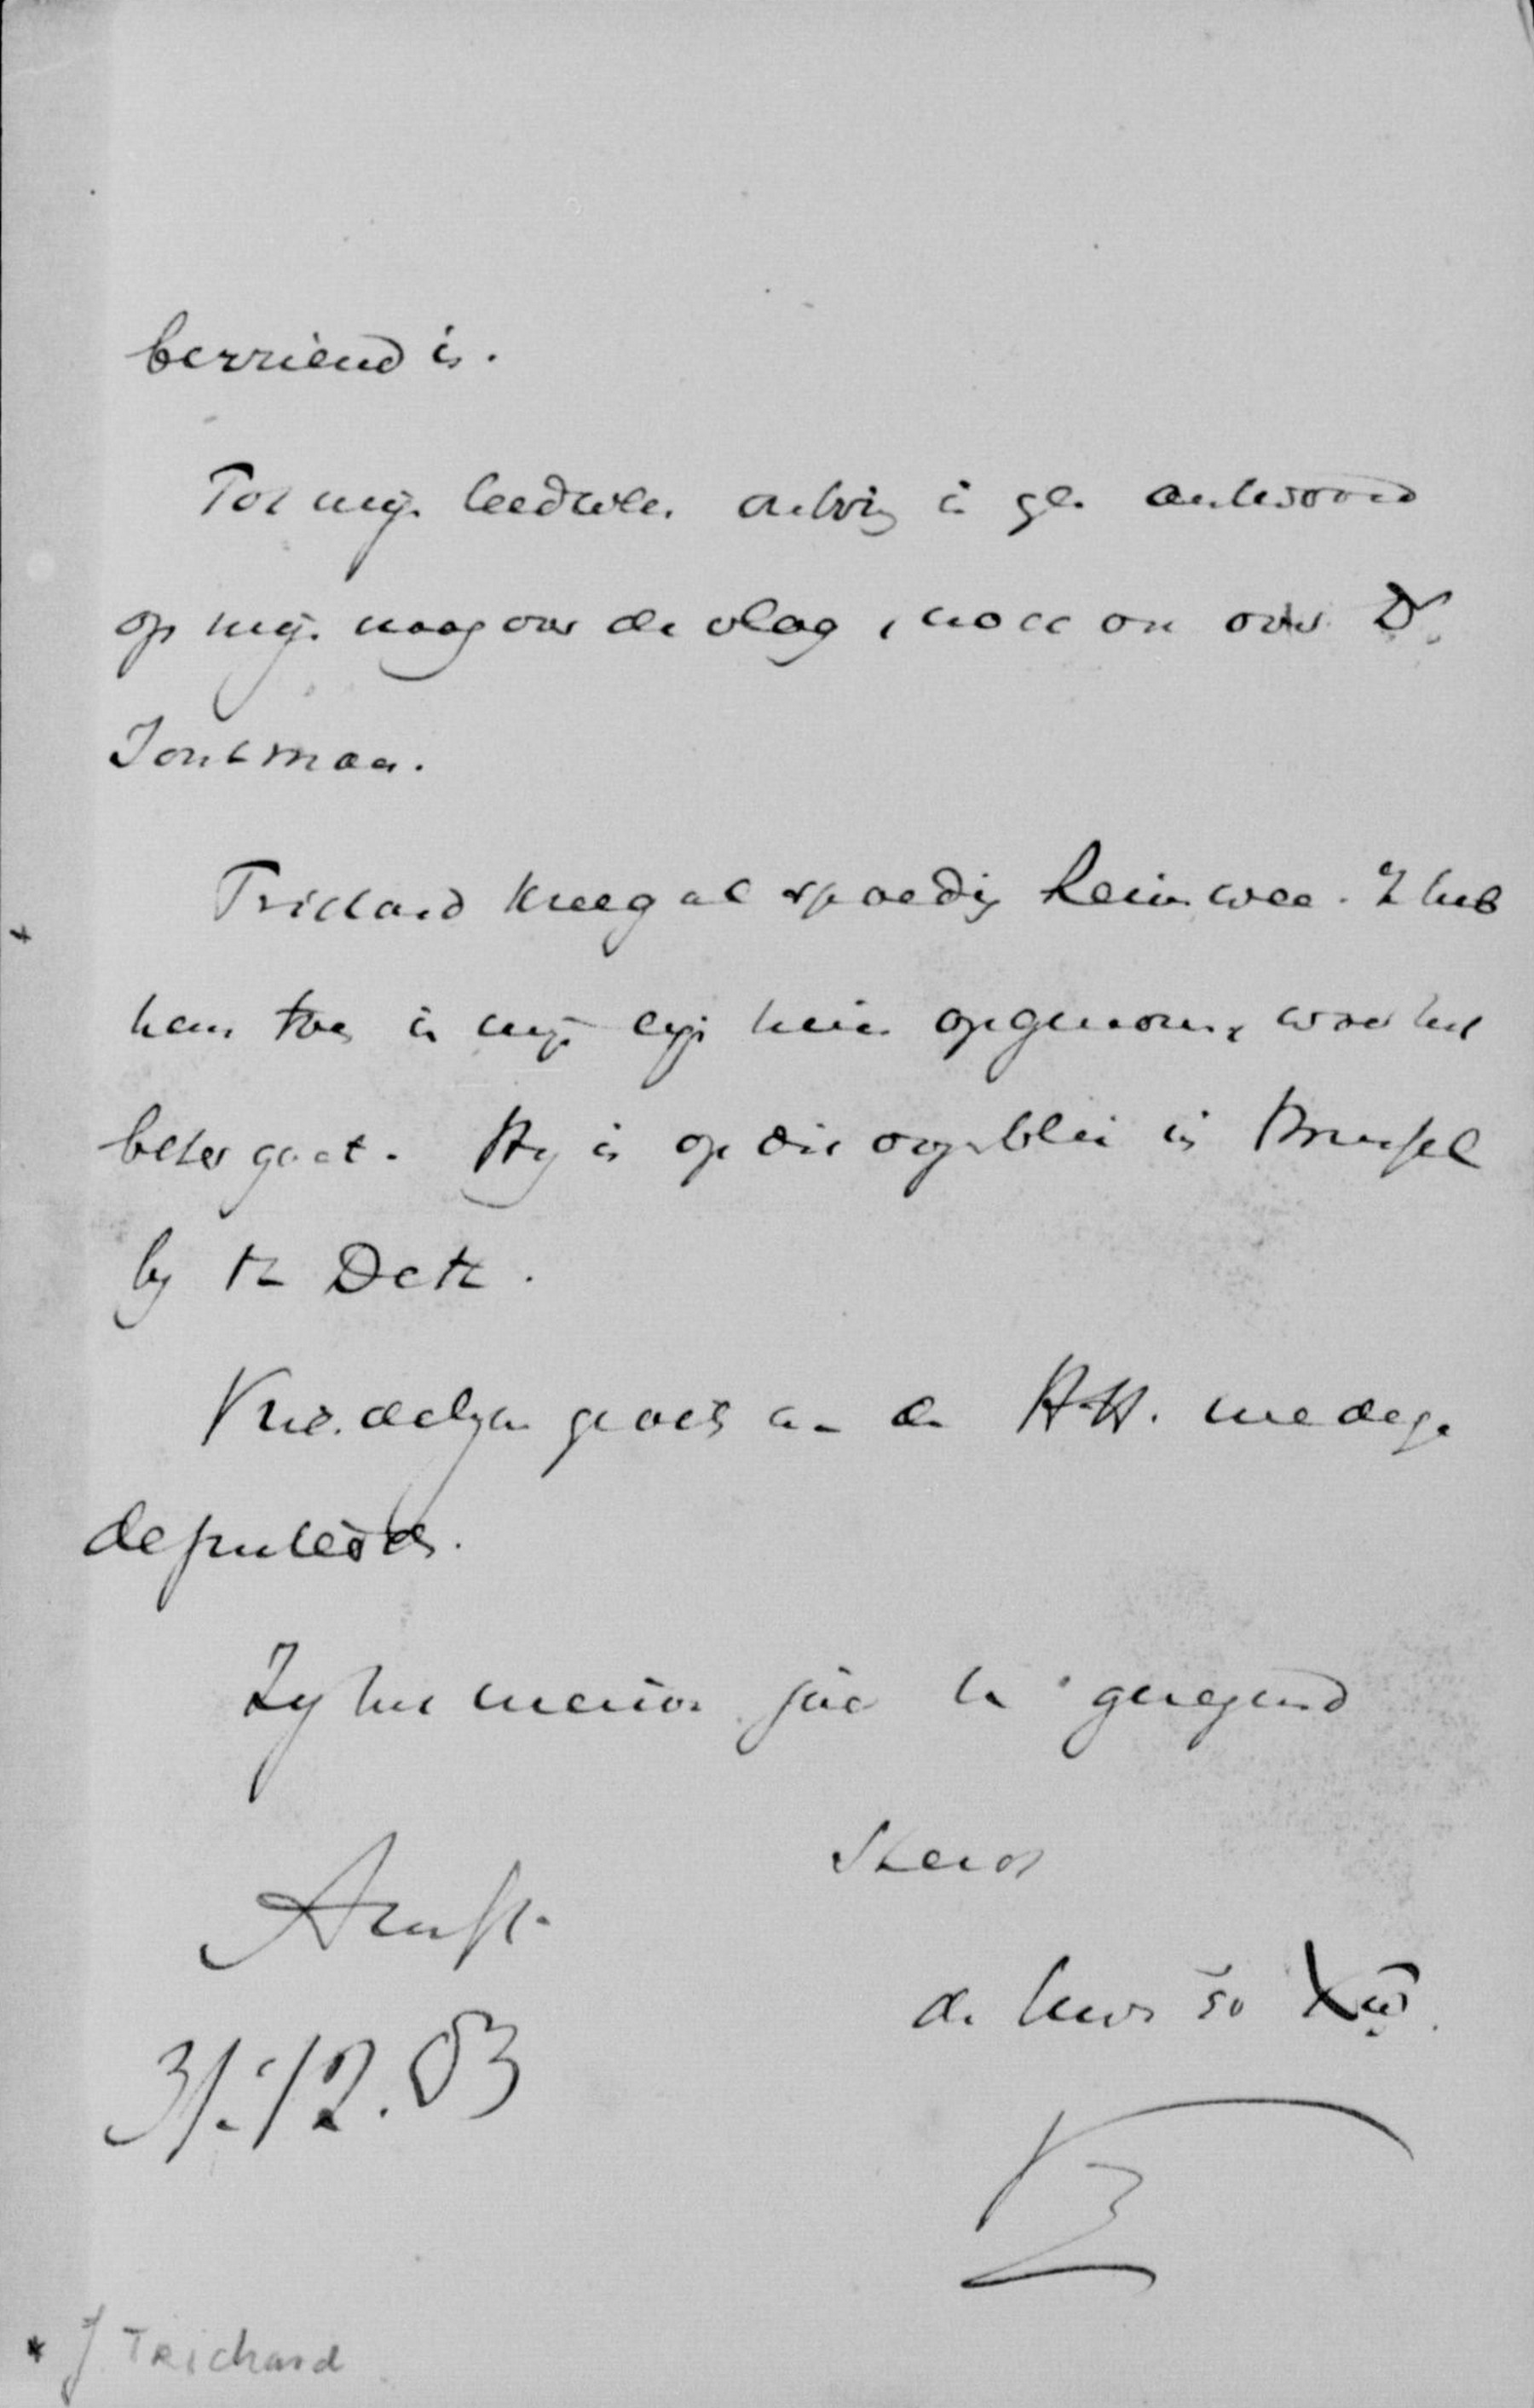 bevriend is.
Tot mijn leedwezen ontving ik geen antwoord
op mijn vraag over de vlag, noch ook over Dr.
Jonkman.
Trichard kreeg al spoedig heimwee. Ik heb
hem toen in mijn eigen huis opgenomen, waar het
beter gaat. Hij is op dit oogenblik in Brussel
bij
Vriendelijke groet aan de HH. medege-
deputeerden.
Zij het nieuwe jaar U gezegend
Steeds
Amst.
de Uwe
31.12.83
* J Trichard